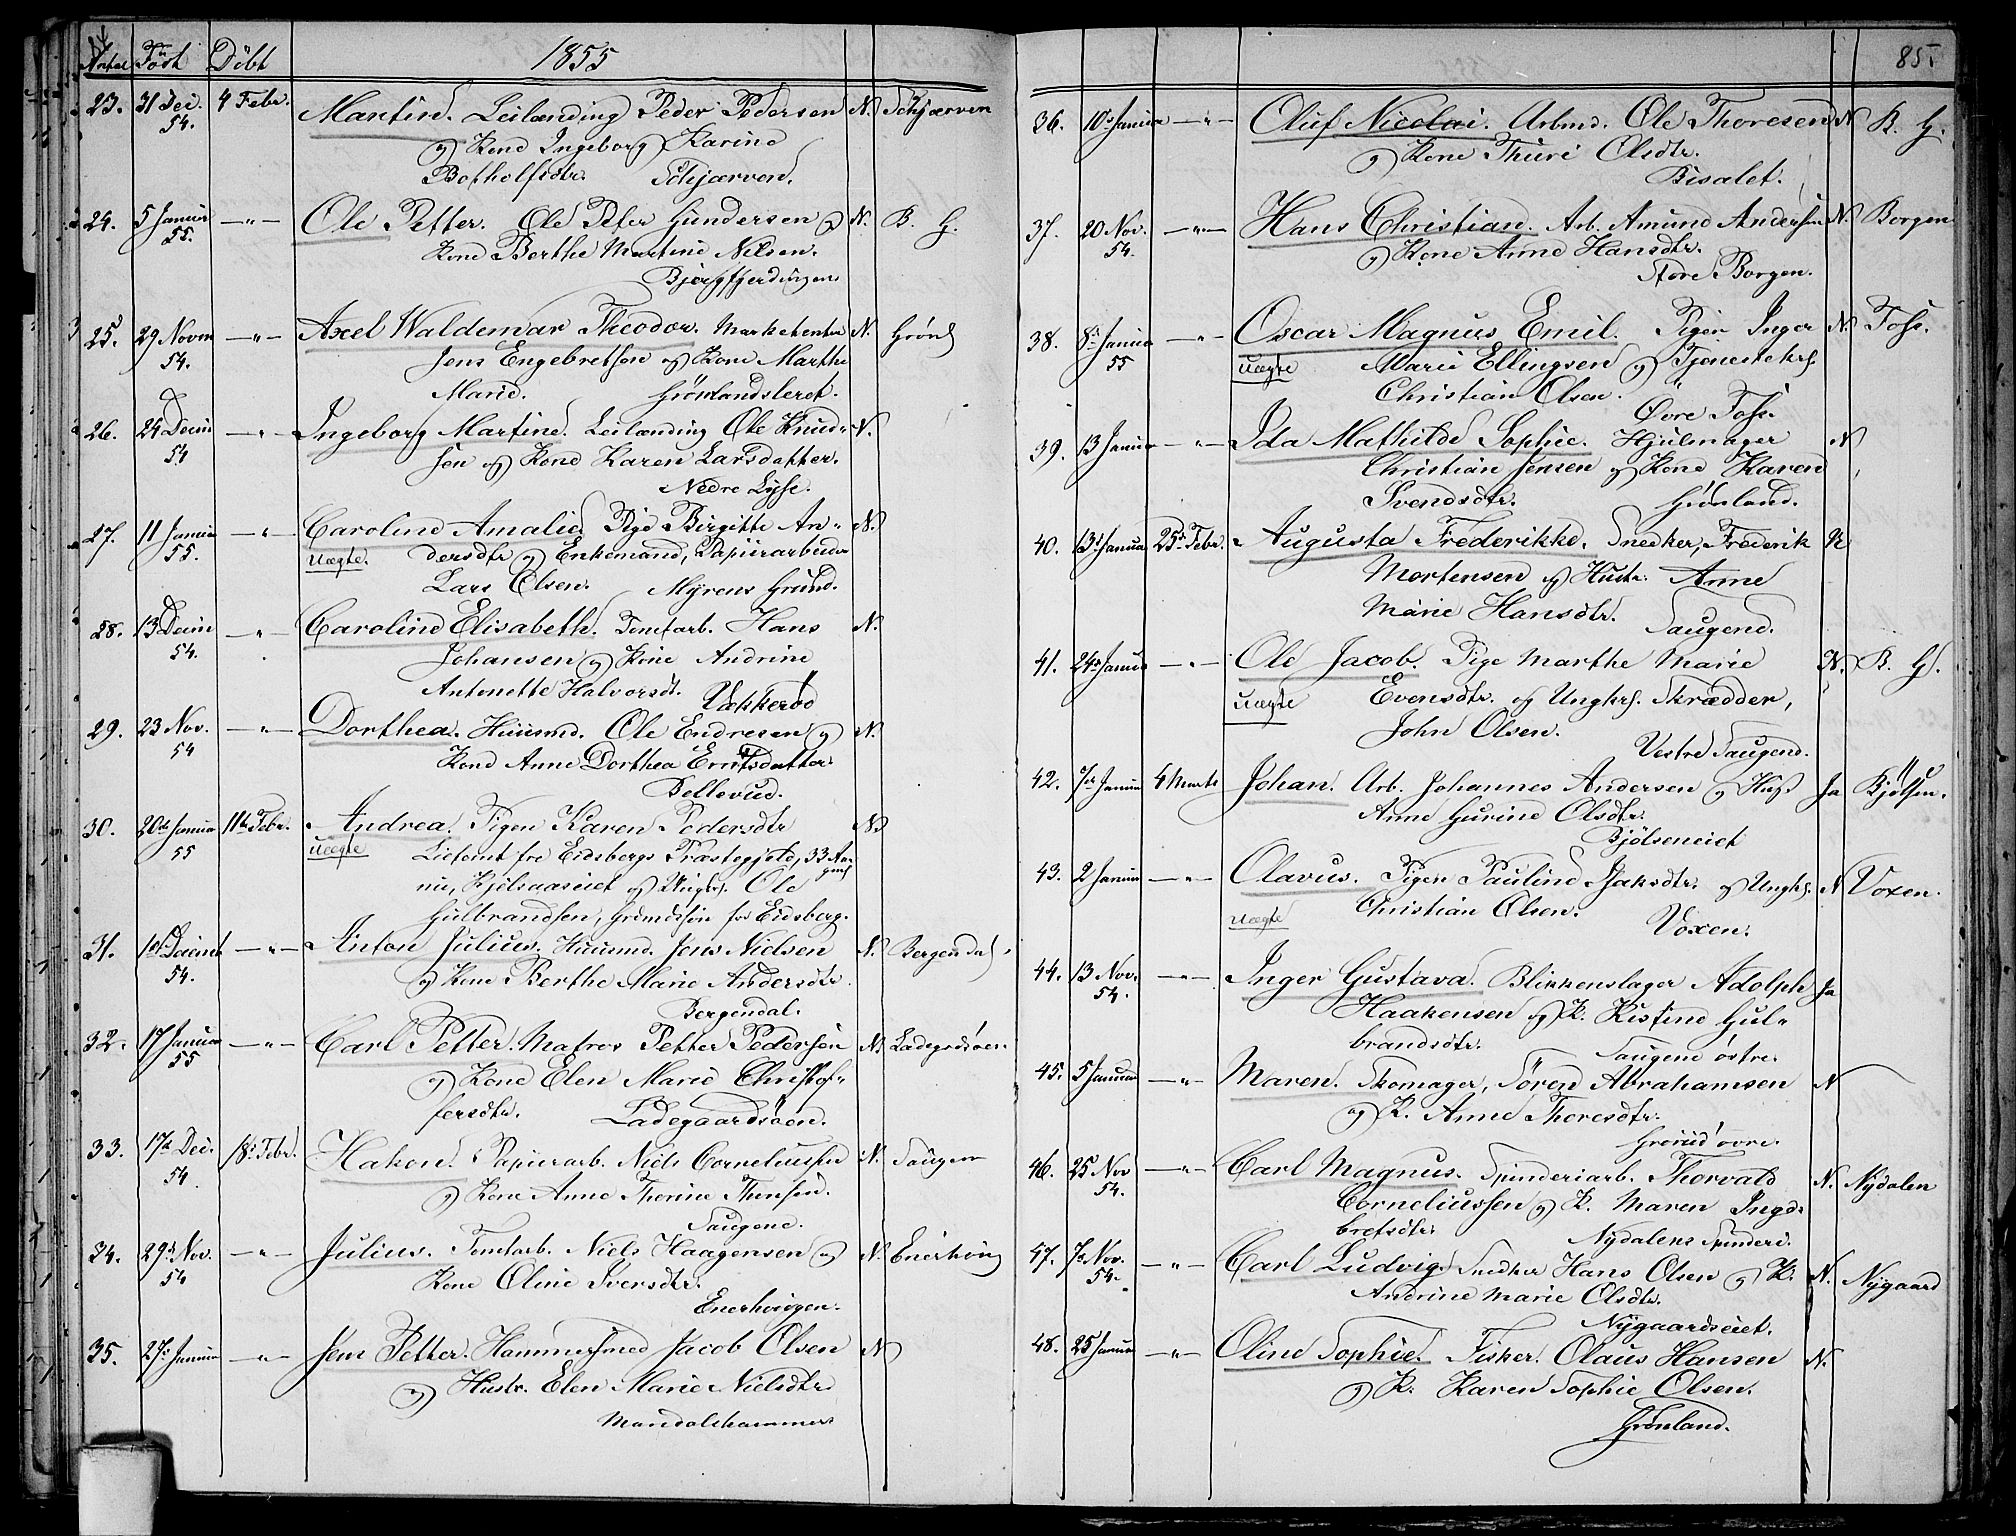 Antal Föst Döbt 1855
23. 31 Dec. 54. 4 Febr. Martin. Leilænding Peder Pedersen N. Schjærven
og Kone Ingeborg Karine
Botholfsdtr. Schjærven.
24. 5 Januar 55. —"— Ole Petter. Ole Peter Gundersen og N. B. G.
Kone Berthe Martine Nilsen.
Bjerggjerdingen
25. 29 Novm 54. —"— Axel Waldemar Theodor. Marketenter N. Grønl
Jens Engebretsen og Kone Marthe
Marie. Grønlandsleret.
26. 24 Decm 54 —"— Ingeborg Martine. Leilænding Ole Knud- N.
sen og Kone Karen Larsdatter.
Nedre Lysse.
27. 11 Januar 55. —"— Caroline Amalie. Pige Birgitte An- N.
Uægte. dersdtr og Enkemand, Papirarbeider
Lars Olsen. Myrens Grund.
28. 13 Decm 54. —"— Caroline Elisabeth. Tomtarb. Hans N.
Johansen og Kone Andrine
Antonette Halvorsdt. Vækkerød
29. 23 Nov. 54 —"— Dorthea. Huusmd. Ole Endresen og N.
Kone Anne Dorthea Erntsdatter.
Bellevue.
30. 20de Januar 55 11te Febr. Andrea. Pigen Karen Pedersdtr N.
Uægte Lieformt fra Eidsbergs Præstegjeld, 33 An-
nu, Kjelsaaseiet og Ungkrl. Ole
Gulbrandsen, Grimssøn fra Eidsberg.
31. 1ste Decemb 54. —"— Anton Julius. Huusmd. Jens Nielsen N. Bergendal
og Kone Berthe Marie Andersdtr.
Bergendal.
32. 17 Januar 55 —"— Carl Petter. Matros Petter Pedersen N. Ladegrdsøen
og Kone Elen Marie Christof-
fersdtr. Ladegaardsøen.
33. 17de Dec. 54. 18. Febr. Hakon. Papirarb. Niels Corneliussen N. Saugen
og Kone Anne Thorine Thensen.
Saugene.
34. 29de Nov. 54 —"— Julius. Tomtarb. Niels Haagensen og N. Enerhoug
Kone Oline Iversdtr.
Enerhougen.
35. 27. Januar —"— Jens Petter. Hammersmed Jacob Olsen N
og Hustr. Elen Marie Nielsdtr.
Maridalshammer
85.
36. 10. Januar —"— Oluf Nicolai. Arbmd. Ole Thoresen N B. G.
og Kone Thuri Olsdtr.
Bisalet.
37. 20 Nov. 54. —"— Hans Christian. Arb. Amund Andersen N. Borgen
og Kone Anne Hansdtr.
Store Borgen.
38. 8. Januar 55 —"— Oscar Magnus Emil. Pigen Inger N. Tøhs.
Uægte Marie Ellingsen og Tjenestekrl.
Christian Olsen.
Övre Tøhs.
39. 13 Januar —"— Ida Mathilde Sophie. Hjulmager N
Christian Jensen og Kone Karen
Svendsdtr. Grønland.
40. 13. Januar 25. Febr. Augusta Frederikke. Snedker, Frederik N
Mortensen og Hustr. Anne
Marie Hansdtr. Saugene.
41. 24. Januar —"— Ole Jacob. Pige Marthe Marie N. B. G.
Uægte Evensdtr. og Ungkrl. Skrædder,
John Olsen.
Vestre Saugene.
42. 7de Januar 4 Marts Johan. Arb. Johannes Andersen og Hus. Ja Bjølsen.
Anne Gurine Olsdtr.
Bjølseneiet
43. 2 Januar —"— Olavus. Pigen Pauline Isaksdtr. og Ungkrl. N Voxen.
Uægte Christian Olsen.
Voxen.
44. 13 Nov. 54. —"— Inger Gustava. Blikkenslager Adolph Ja
Haakensen og K. Kistine Gul-
brandsdtr. Saugene östre.
45. 5 Januar —"— Maren. Skomager, Sören Abrahamsen N
og K. Anne Thoresdtr.
Grorud övre.
46. 25 Nov 54. —"— Carl Magnus. Spinderiarb. Thorvald N. Nydalen
Corneliussen og K. Maren Inge-
bretsdtr. Nydalens Spinderi.
47. 7de Nov. 54. —"— Carl Ludvig. Snedker Hans Olsen og K. N. Nygaard
Andrine Marie Olsdtr.
Nygaardseiet.
48. 25 Januar —"— Oline Sophie. Fisker. Olaus Hansen N.
og K. Karen Sophie Olsen.
Grönland.